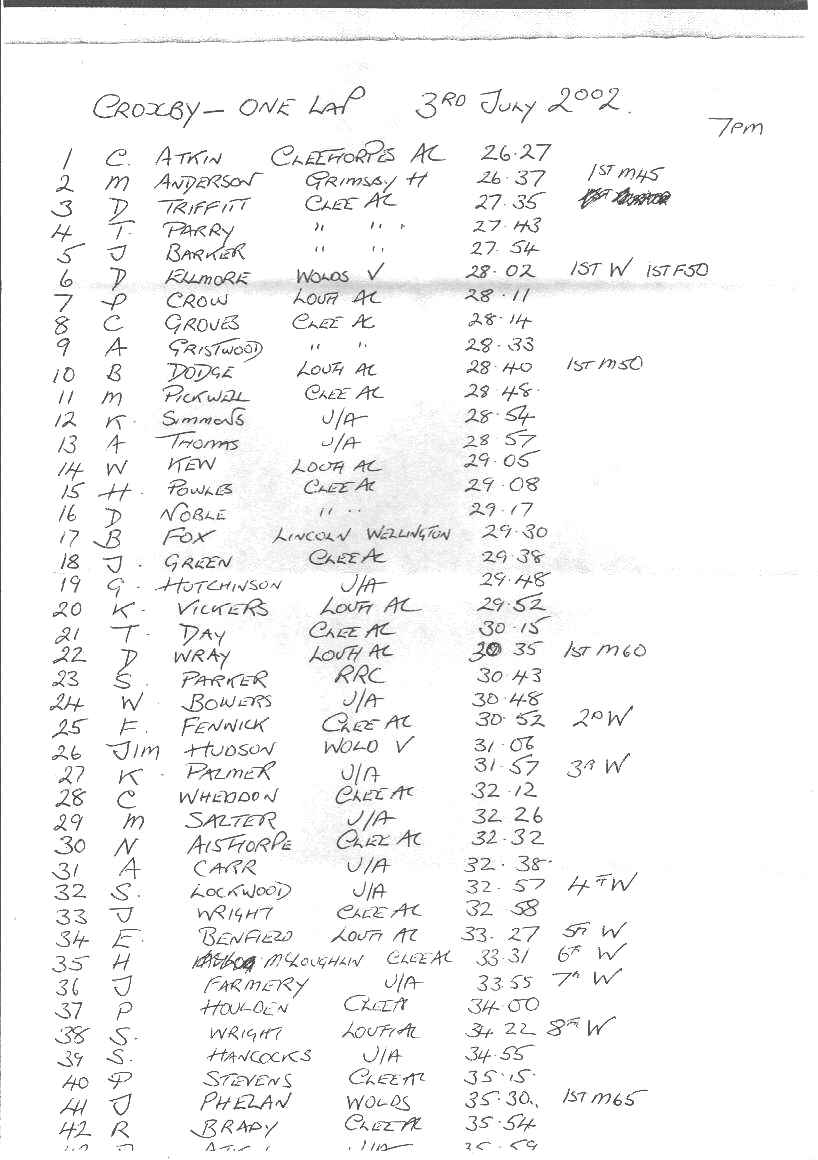 CROXBY - ONE LAP 3RD JULY 2002.
7pm
1 C. ATKIN CLEETHORPES AC 26.27
2 M ANDERSON GRIMSBY H 26.37 1ST M45
3 D TRIFFITT CLEE AC 27.35
4 T. PARRY " " " 27.43
5 J BARKER " " 27.54
6 D ELLMORE WOLDS V 28.02 1ST W 1ST F50
7 P CROW LOUTH AC 28.11
8 C GROVES CLEE AC 28.14
9 A GRISTWOOD " " 28.33
10 B DODGE LOUTH AC 28.40 1ST M50
11 M PICKWELL CLEE AC 28.48.
12 K. SIMMONS U/A 28.54
13 A THOMAS U/A 28.57
14 W KEW LOUTH AC 29.05
15 H. POWLES CLEE AC 29.08
16 D NOBLE " " 29.17
17 B FOX LINCOLN WELLINGTON 29.30
18 J. GREEN CLEE AC 29.38
19 G. HUTCHINSON U/A 29.48
20 K. VICKERS LOUTH AC 29.52
21 T. DAY CLEE AC 30.15
22 D WRAY LOUTH AC 30 35 1ST M60
23 S. PARKER RRC 30.43
24 W BOWERS U/A 30.48
25 F. FENWICK CLEE AC 30.52 2D W
26 JIM HUDSON WOLD V 31.06
27 K PALMER U/A 31.57 3RD W
28 C WHEDDON CLEE AC 32.12
29 M SALTER U/A 32 26
30 N AISTHORPE CLEE AC 32.32
31 A CARR U/A 32.38.
32 S. LOCKWOOD U/A 32.57 4TH W
33 J WRIGHT CLEE AC 32 58
34 E. BENFIELD LOUTH AC 33.27 5TH W
35 H MCLOUGHLIN CLEE AC 33.31 6TH W
36 J FARMERY U/A 33.55 7TH W
37 P HOULDEN CLEE A 34.00
38 S. WRIGHT LOUTH AC 34 22 8TH W
39 S. HANCOCKS U/A 34.55
40 P STEVENS CLEE AC 35.15.
41 J PHELAN WOLDS 35.30. 1ST M65
42 R BRADY CLEE AC 35.54